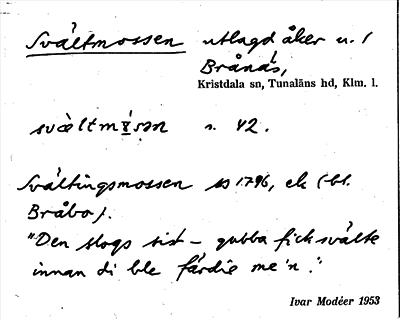 Svältmossen utlagd åker u. /
Brånäs,
Kristdala sn, Tunaläns hd, Klm. l.
s. 42.
Svältingsmossen 1796, ek (bl.
Bråbo).
"Den slogs sist – gubba fick svälte
innan di ble färdie me'n."
Ivar Modéer 1953